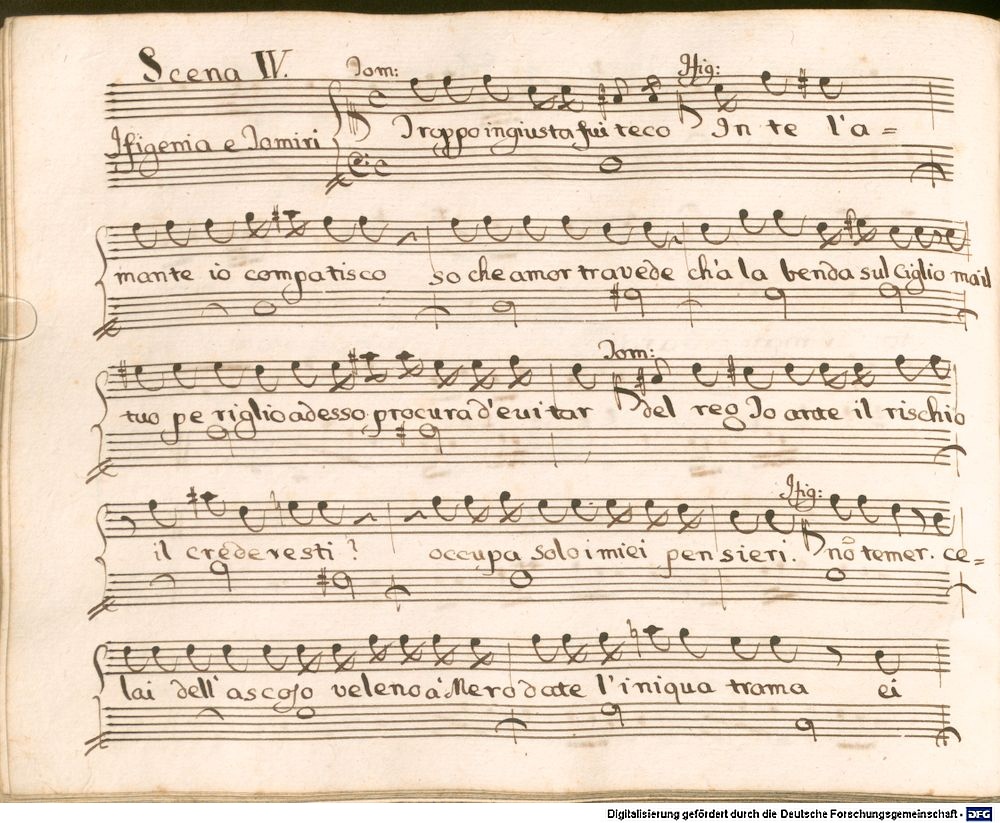 Scena IV. Tom: Ifig:
Troppo ingiusta fui teco In te l'a=
Ifigenia e Tomiri
mante io compatisco so che amor travede ch'à la benda sul Ciglio ma il
Tom:
tuo periglio adesso procura d'evitar del reg Toante il rischio
Ifig:
il crederesti? occupa solo i miei pensieri. nō temer. ce=
lai dell'ascoso veleno à Merodate l'iniqua trama ei
Digitalisierung gefördert durch die Deutsche Forschungsgemeinschaft - DFG